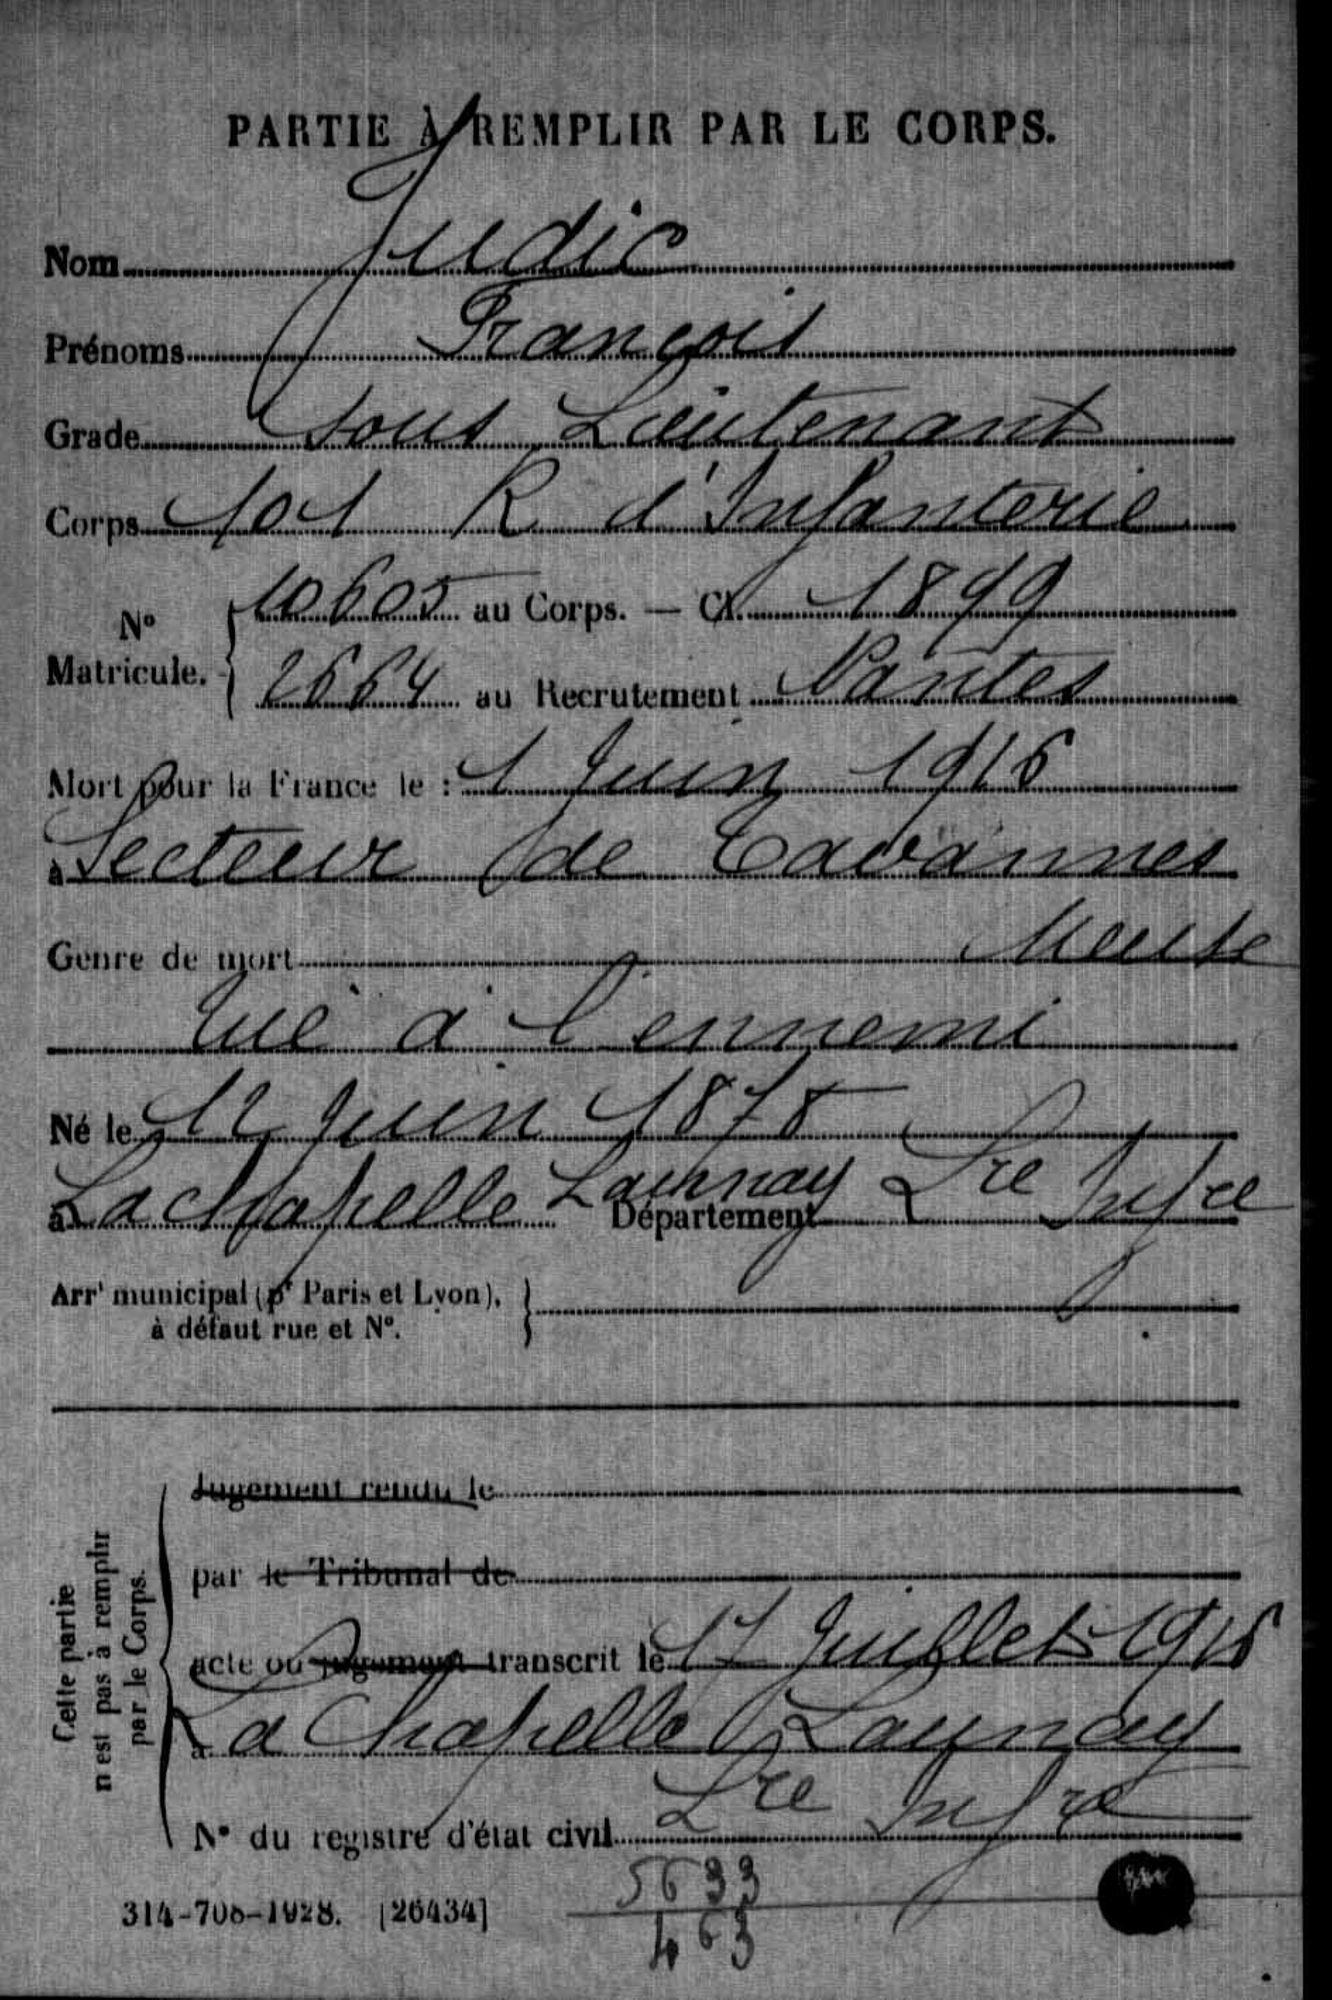 PARTIE À REMPLIR PAR LE CORPS.
Nom Judic
Prénoms François
Grade Sous Lieutenant
Corps 101 R d'Infanterie
N° Matricule. 10605 au Corps. — Cl. 1899
2664 au Recrutement Nantes
Mort pour la France le : 1 Juin 1916
à Secteur de Tavannes
Genre de mort Meuse
Tué à l'ennemi
Né le 12 Juin 1878
à La Chapelle Launay Département Lre Infre
Arrt municipal (pr Paris et Lyon),
à défaut rue et N°.
Jugement rendu le
par le Tribunal de
acte ou jugement transcrit le 17 Juillet 1916
à La Chapelle Launay
Lre Infre
N° du registre d'état civil
Cette partie
n'est pas à remplir
par le Corps.
5633
463
314-708-1928. [26434]